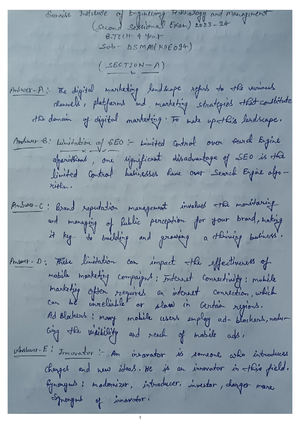 Institute of Engineering Technology and Management
(Second Sessional Exam) 2023-24
B.TECH 4 year
Sub:- DSMM (KOE094)
(SECTION-A)
Answer-A:- The digital marketing landscape refers to the various
channels, platforms and marketing strategies that constitute
the domain of digital marketing. To make up this landscape.
Answer-B: Limitation of SEO:- Limited control over Search Engine
algorithms, one significant disadvantage of SEO is the
limited control businesses have over Search Engine algo-
rithm.
Answer-C: Brand reputation management involves the monitoring
and managing of public perception for your brand, making
it key to building and growing a thriving business.
Answer-D: These limitation can impact the effectiveness of
mobile marketing campaigns: Internet connectivity: mobile
marketing often requires on internet connection, which
can be unreliable or slow in certain regions.
Ad Blockers: many mobile users employ ad-blockers, redu-
cing the visibility and reach of mobile ads.
Answer-E: Innovator:- An inovator is someone who introduces
changes and new ideas. He is an inovator in this field.
Synonyms: modernizer, introducer, investor, changer are
Synonym of inovator.
1